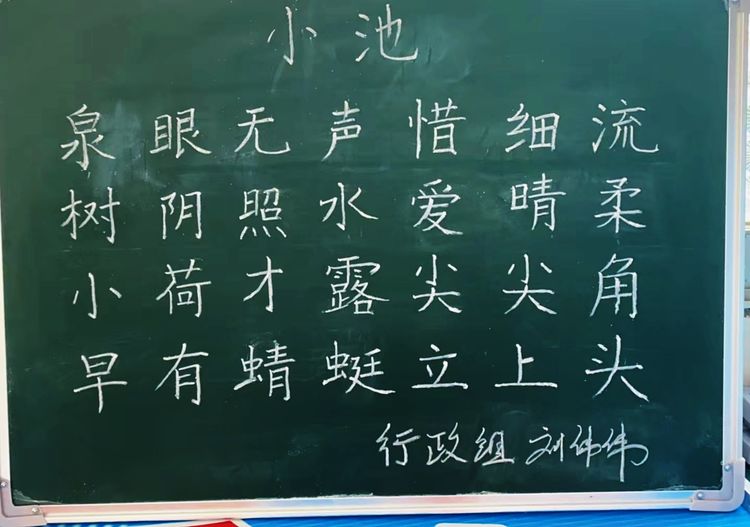 小池
泉眼无声惜细流
树阴照水爱晴柔
小荷才露尖尖角
早有蜻蜓立上头
行政组 刘伟伟